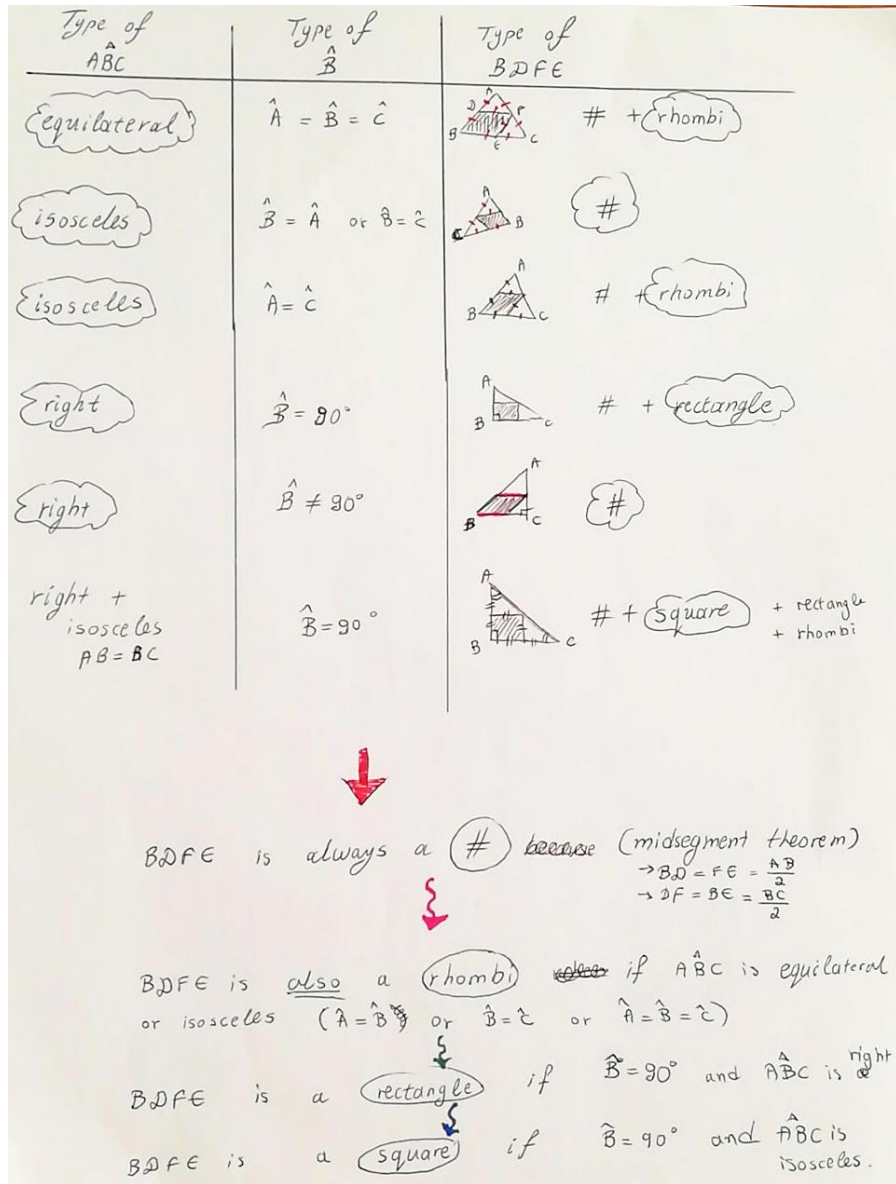 Type of ABC Type of B̂ Type of BDFE
equilateral Â = B̂ = Ĉ A D F B E C # + rhombi
isosceles B̂ = Â or B̂ = Ĉ A B C #
isosceles Â = Ĉ A B C # + rhombi
right B̂ = 90° A B C # + rectangle
right B̂ ≠ 90° A B C #
right +
isosceles B̂ = 90° A B C # + square + rectangle
AB = BC + rhombi
BDFE is always a # (midsegment theorem)
→ BD = FE = AB/2
→ DF = BE = BC/2
BDFE is also a rhombi if ABC is equilateral
or isosceles (Â = B̂ or B̂ = Ĉ or Â = B̂ = Ĉ)
BDFE is a rectangle if B̂ = 90° and ABC is right
BDFE is a square if B̂ = 90° and ABC is
isosceles.